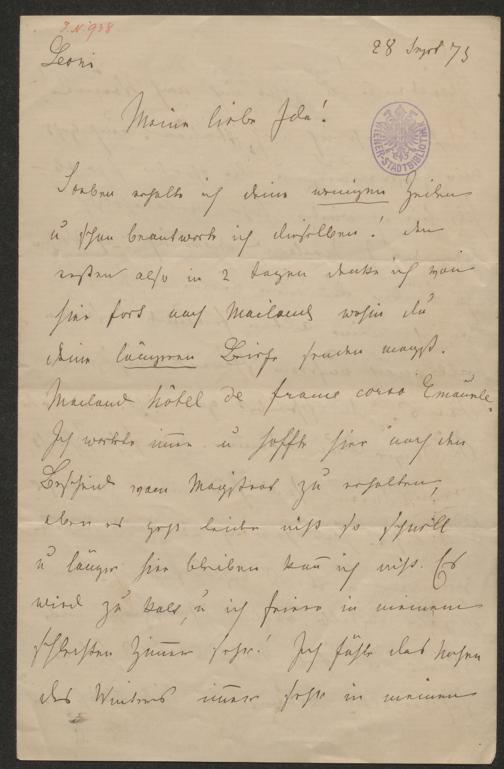 J. N. 938
Leoni
28 Sept 75
Meine liebe Ida!
WIENER-STADTBIBLIOTHEK
Soeben erhalte ich deine wenigen Zeilen
u schon beantworte ich dieselben! den
ersten also in 2 tagen denke ich von
hier fort nach Mailand wohin du
deine längeren Briefe senden magst.
Mailand hôtel de france corso Emanuele.
Ich wartete immer u hoffte hier noch den
Bescheid vom Magistrat zu erhalten,
aber es geht leider nicht so schnell
u länger hier bleiben kann ich nicht. Es
wird zu kalt, u ich friere in meinem
schlechten Zimmer sehr! Ich fühle das nahen
des Winters immer sehr in meinen